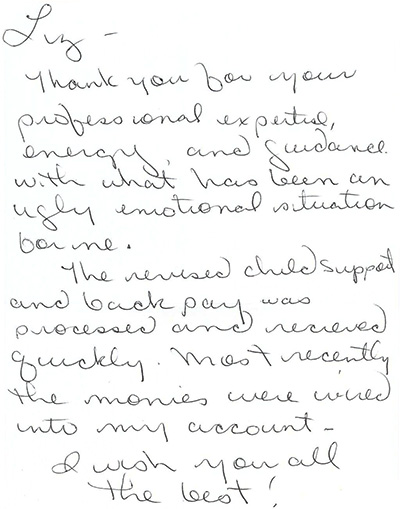 Liz -
Thank you for your
professional expertise,
energy, and guidance
with what has been an
ugly emotional situation
for me.
The revised child support
and back pay was
processed and recieved
quickly. Most recently
the monies were wired
into my account -
I wish you all
the best!